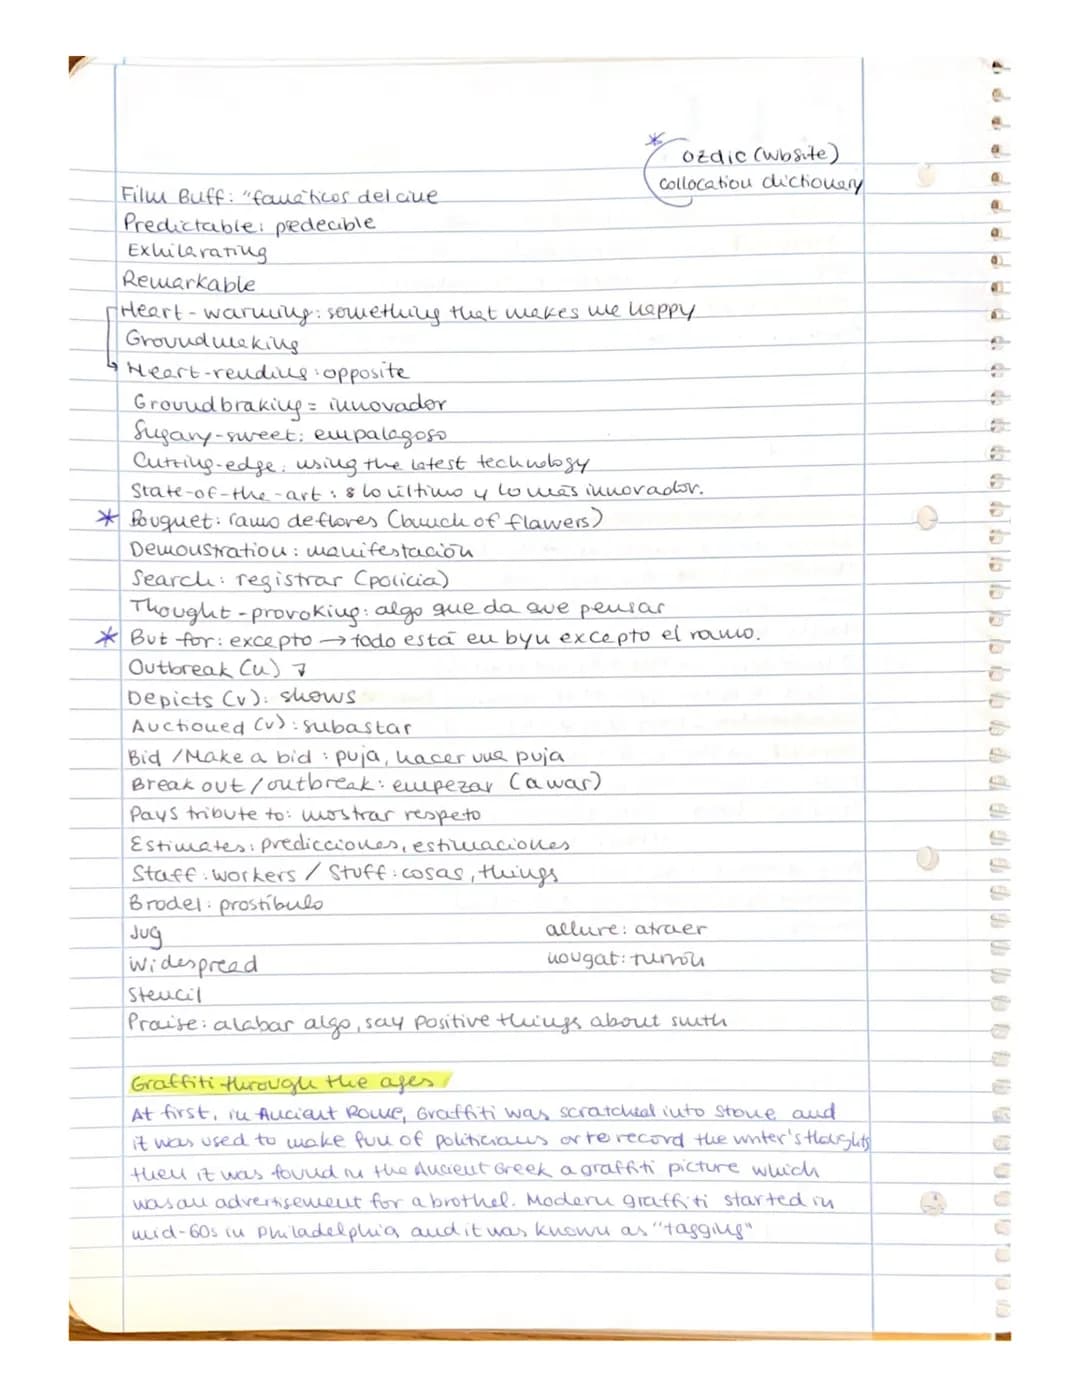 * ozdic (wbsite)
collocation dictionary
Film Buff: "fanáticos del cine
Predictable: predecible
Exhilarating
Remarkable
Heart-warming: something that makes me happy
Groundmaking
Heart-rending: opposite
Groundbraking = innovador
Sugary-sweet: empalagoso
Cutting-edge: using the latest technology
State-of-the-art: lo último y lo más innovador.
* Bouquet: ramo de flores (bunch of flawers)
Demonstration: manifestación
Search: registrar (policía)
Thought-provoking: algo que da que pensar
* But for: excepto → todo está en byn excepto el ramo.
Outbreak (n)
Depicts (v): shows
Auctioned (v): subastar
Bid / Make a bid: puja, hacer una puja
Break out / outbreak: empezar (a war)
Pays tribute to: mostrar respeto
Estimates: predicciones, estimaciones
Staff: workers / Stuff: cosas, things
Brodel: prostíbulo
Jug allure: atraer
Widespread nougat: turrón
Stencil
Praise: alabar algo, say positive things about smth
Graffiti through the ages
At first, in Anciant Rome, Graffiti was scratched into stone and
it was used to make fun of politicians or to record the writer's thoughts
then it was found in the Ancient Greek a graffiti picture which
was an advertisement for a brothel. Modern graffiti started in
mid-60s in Philadelphia and it was known as "tagging"